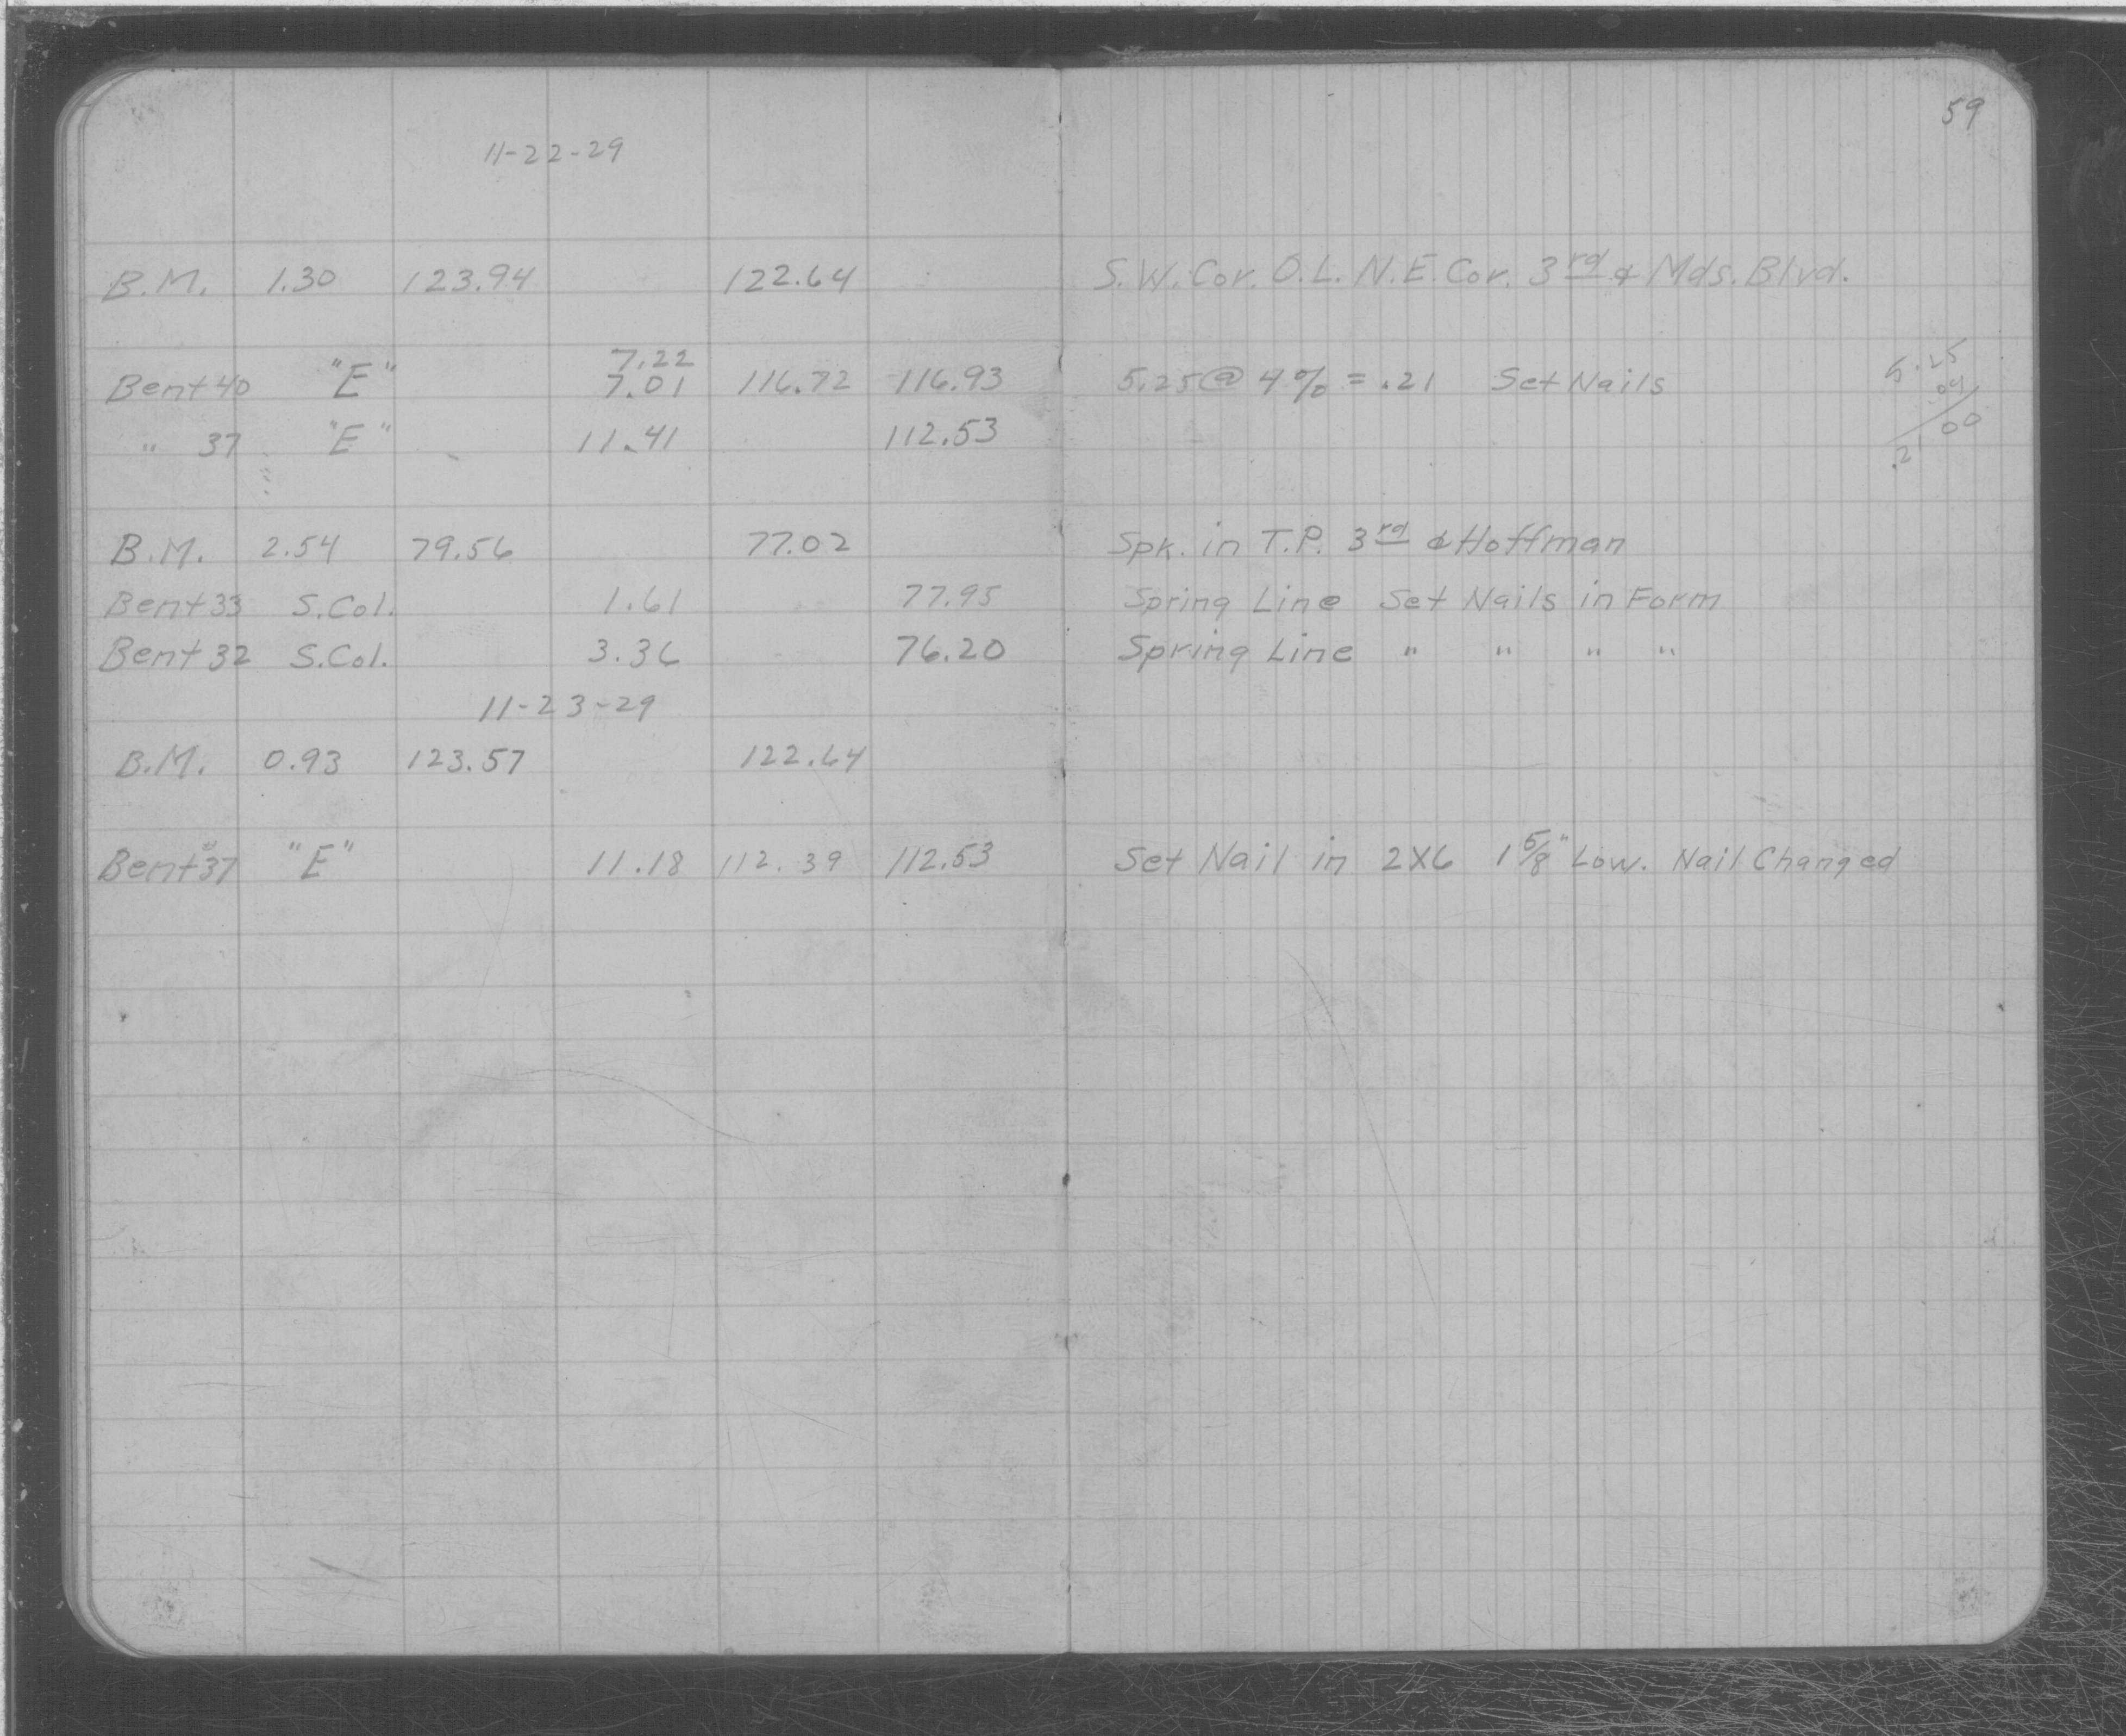 59
11-22-29
B.M. 1.30 123.94 122.64 S.W. Cor. O.L. N.E. Cor. 3rd & Mds. Blvd.
7.22
Bent 40 "E" 7.01 116.72 116.93 5.25 @ 4% = .21 Set Nails
" 37 "E" 11.41 112.53
5.25
.04
.21 00
B.M. 2.54 79.56 77.02 Spk. in T.P. 3rd & Hoffman
Bent 33 S.Col. 1.61 77.95 Spring Line Set Nails in Form
Bent 32 S.Col. 3.36 76.20 Spring Line " " " "
11-23-29
B.M. 0.93 123.57 122.64
Bent #37 "E" 11.18 112.39 112.53 Set Nail in 2X6 1 5/8" Low. Nail Changed